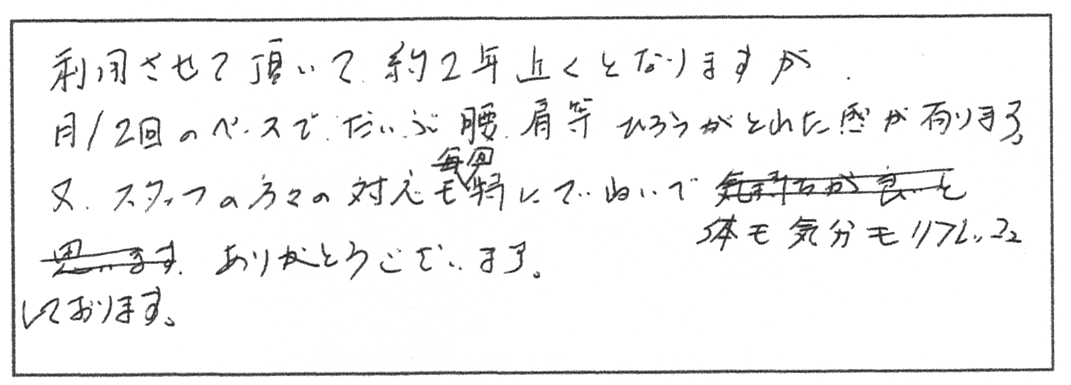 利用させて頂いて、約2年近くとなりますが、
月/2回のペースで、だいぶ腰、肩等 ひろうがとれた感が有ります。
又、スタッフの方々の対応も毎回特にていねいで 気持ちが良いと
体も気分もリフレッシュ
思います ありがとうございます。
しております。